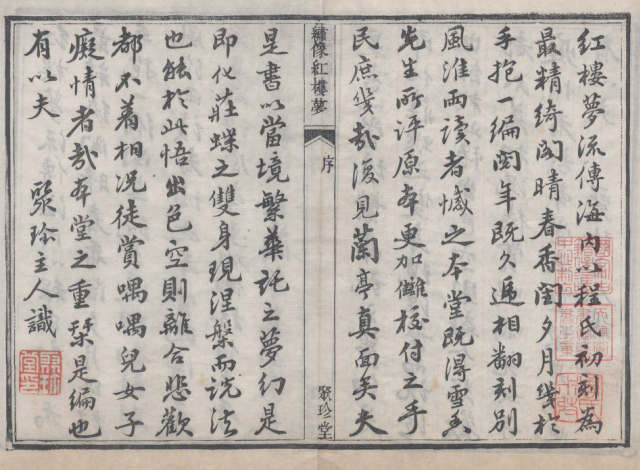 紅樓夢流傳海内以程氏初刻為
最精綺閣晴春香閨夕月幾於
手抱一編閱年既久遞相翻刻別
風淮雨讀者憾之本堂既得雪香
先生所評原本更加讎挍付之手
民庶幾哉復見蘭亭真面矣夫
繡像紅樓夢
序
聚珍堂
是書以當境繁華託之夢幻是
即化莊蝶之雙身現涅槃而説法
也能於此悟出色空則離合悲歡
都不着相况徒賞喁喁兒女子
癡情者哉本堂之重栞是編也
有以夫
聚珍主人識